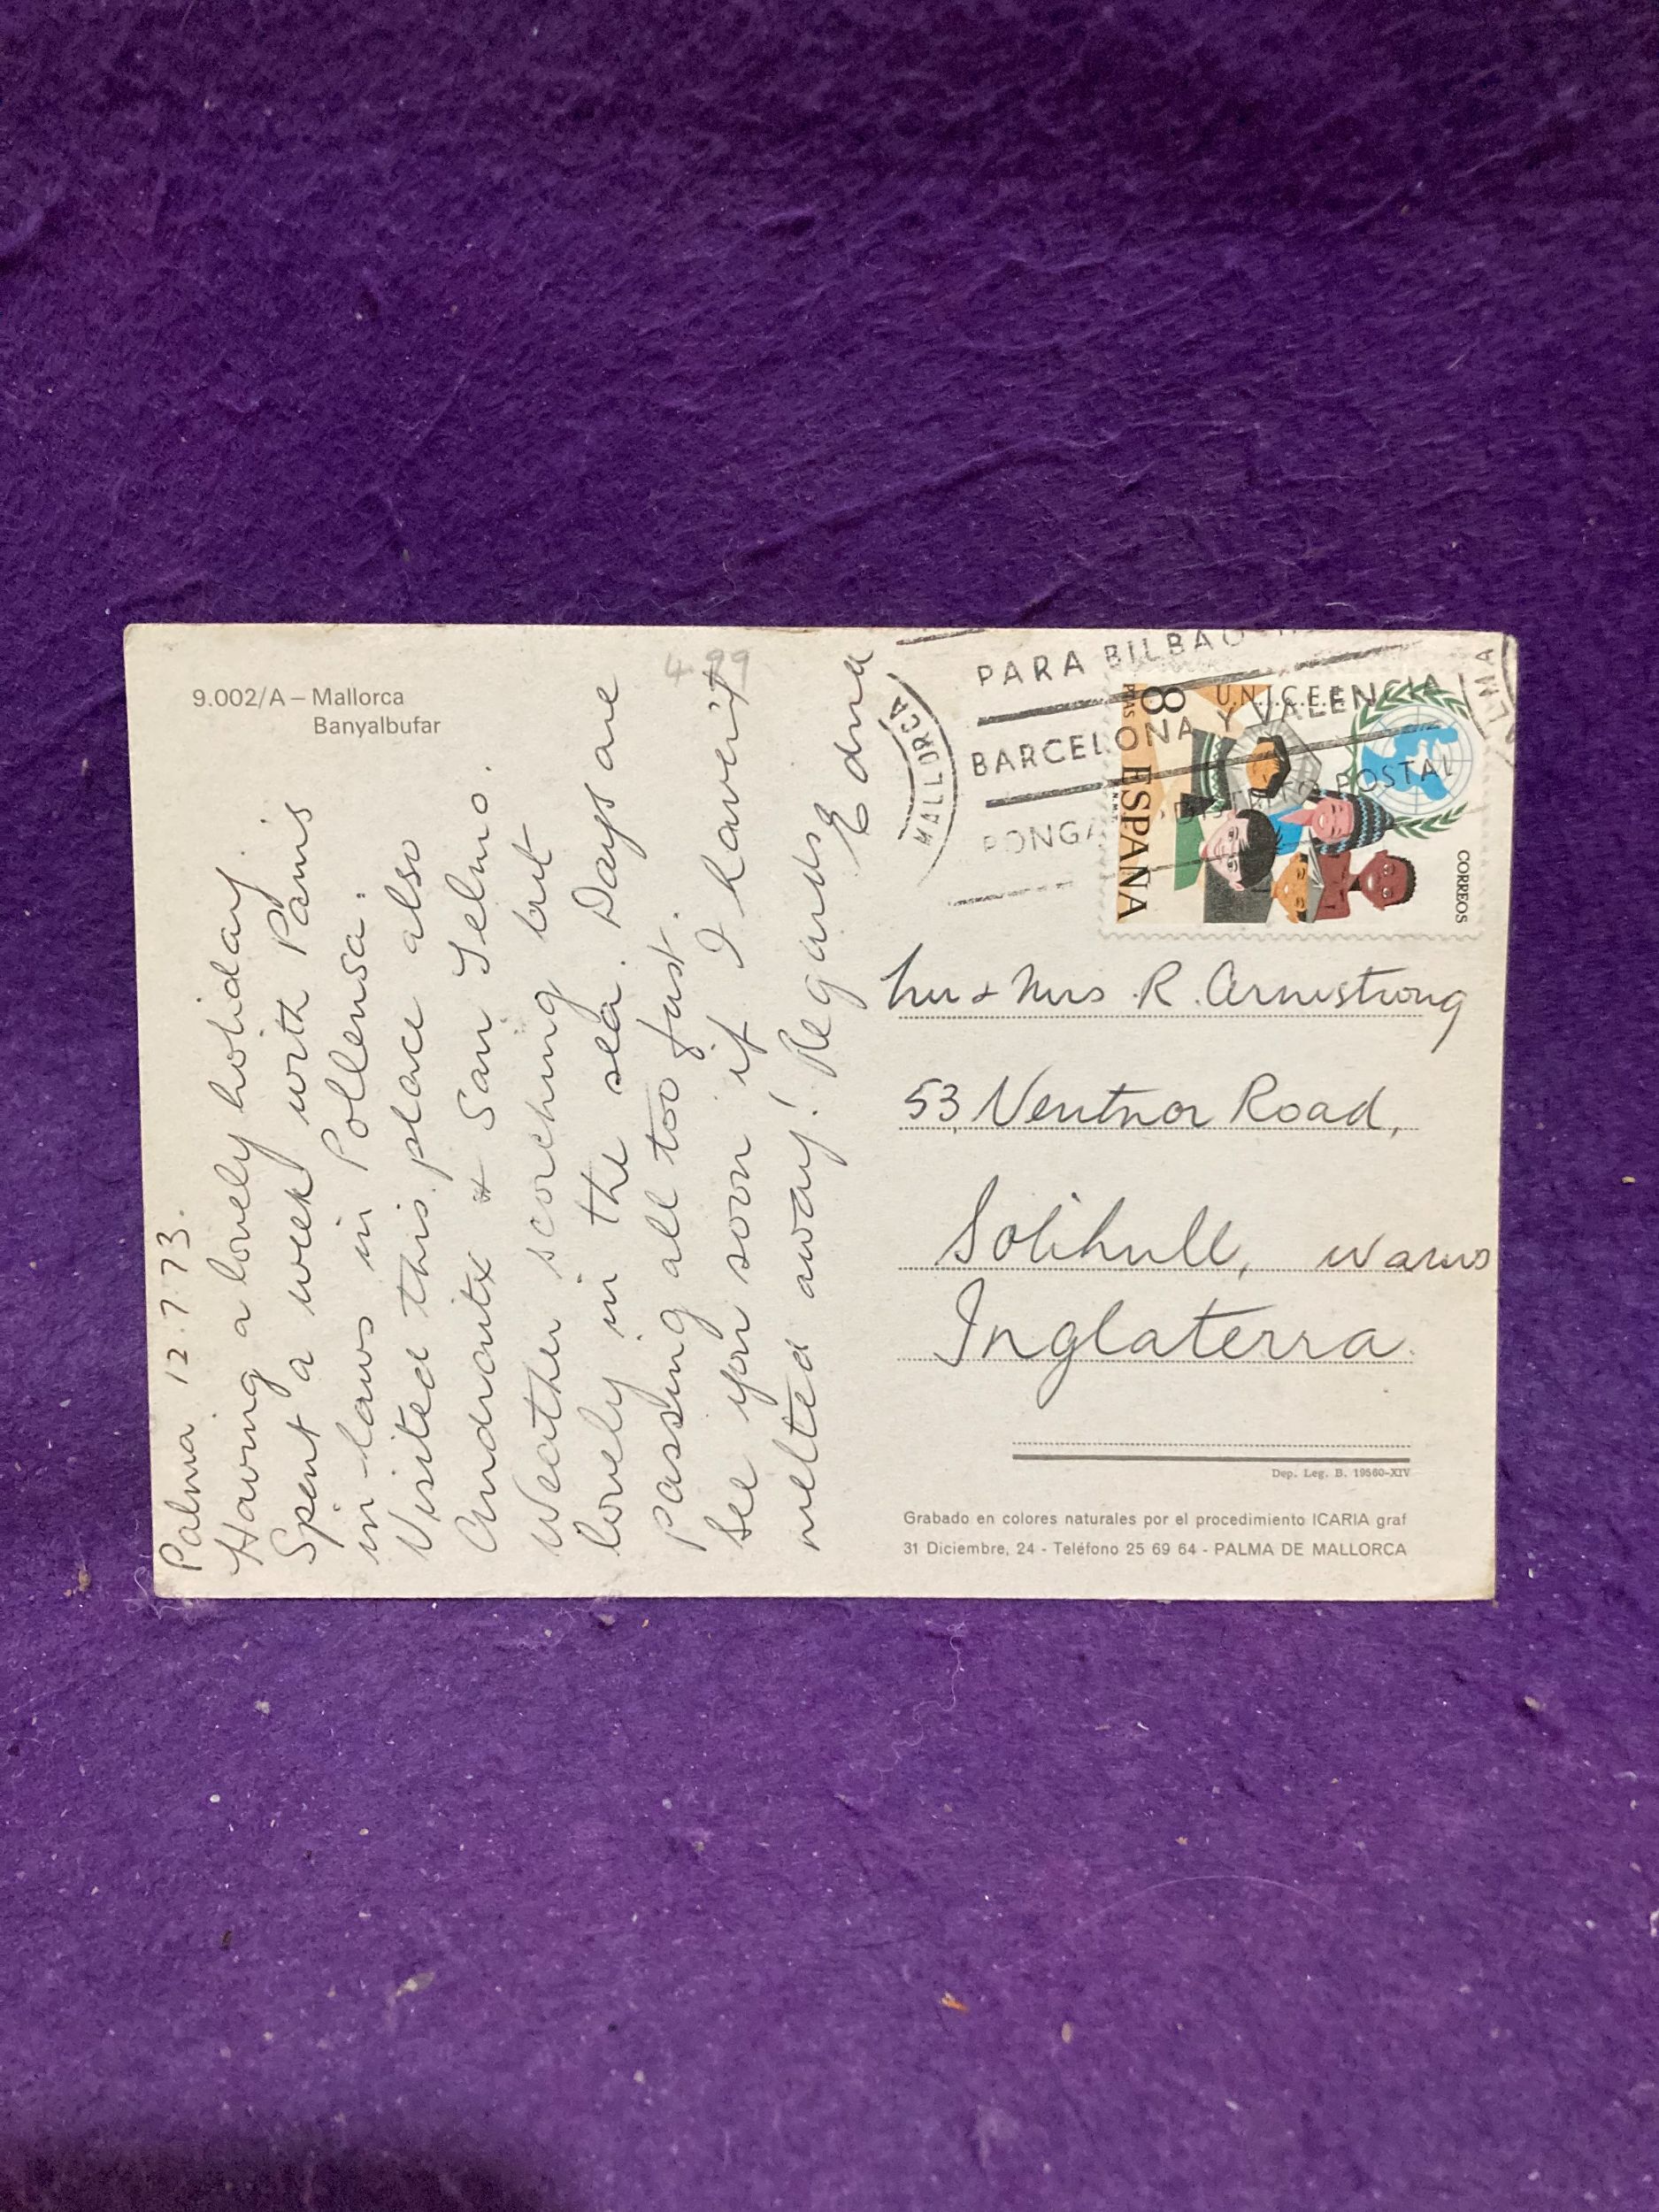 9.002/A – Mallorca
Banyalbufar
Palma 12.7.73.
Having a lovely holiday.
Spent a week with Pam's
in-laws in Pollensa.
Visited this place also
Andraitx & San Telmo.
Weather scorching but
lovely in the sea. Days are
passing all too fast.
See you soon if I haven't
melted away! Regards
Edna
499
MALLORCA
PARA BILBAO
BARCELONA Y VALENCIA
PONGA DISTRITO POSTAL
LMA
8 PTAS
ESPAÑA
U.N.I.C.E.F.
CORREOS
Mr & Mrs R. Armstrong
53, Ventnor Road,
Solihull, Warws
Inglaterra.
Dep. Leg. B. 19560-XIV
Grabado en colores naturales por el procedimiento ICARIA graf
31 Diciembre, 24 - Teléfono 25 69 64 - PALMA DE MALLORCA